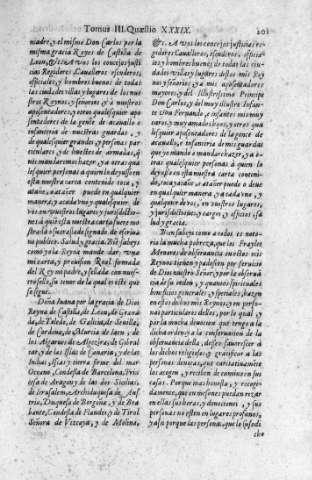 Tomus III. Quæstio XXXIX. 201
madre, y el mismo Don Carlos por la
misma gracia Reyes de Castilla de
Leon, &c. A vos los concejos justi
cias Regidores Cavalleros escuderos,
officiales, y hombres buenos de todas
las ciudades villas y lugares de los nu
stros Reynos, y señorios y a nuestros
aposentadores, y otros qualesquier apo
sentadores de la gente de acauallo e
infanteria de nuestras guardas, y
de qualesquier grandes, y personas par
ticulares, y de huestes de armadas, q̃
mis mandaremos hazer, y a otras qua
lesquier personas a quien lo de yuso en
esta nuestra carta contenido toca, y
atañe, o atañer puede en qualquier
manera, y a cada vno y qualesquier, de
vos en vuestros lugares y jurisdictio-
nes a quiẽ esta nuestra carta fuere mo-
strada o su treslado signado de escriua
no publico. Salud y gracia. Biẽ sabeys
como yo la Reyna mande dar, vna
mi carta, y prouision Real firmada
del Rey mi padre, y sellada con nue-
stro sello, su tenor de la qual es este que
se sigue.
Doña Iuana por la gracia de Dios
Reyna de Castilla, de Leon, de Grana
da, de Toledo, de Galizia, de Seuilla,
de Cordoua, de Murcia de Iaen, de
los Algarues de Algezira, de Gibral
tar, y de las Islas de Canaria, y de las
Indias, Islas, y tierra firme del mar
Oceano, Condesa de Barcelona, Prin
cesa de Aragon y de las dos Sicilias,
de Ierusalem, Archiduquesa de Aus
tria, Duquesa de Borgoña, y de Bra
bante, Condesa de Flandes, y de Tirol
Señora de Vizcaya, y de Molina,
&c. A vos los concejos justicias re-
gidores Caualleros, escuderos, officia
les, y hombres buenos de todas las ciu
dades villas y lugares destos mis Rey
nos y señorios y a mis aposentadores
mayores, y del Illustrissimo Principe
Don Carlos, y del muy illustre Infan-
te Don Fernando, e infantes mis muy
caros, y muy amados hijos, y otros qua
lesquier aposentadores de la gente de
acauallo, e infanteria de mis guardas
que yo mando o mandare hazer, y a o-
tras qualesquier personas à quien lo
de yuso en esta nuestra carta conteni-
do, toca y atañe o atañer puede o deue
en qualquier manera, y a cada vno, y
qualquier de vos, en vuestros lugares,
y jurisdictiones, y cargos, y officios sa-
lud y gracia.
Bien sabeys como a todos es noto-
ria la mucha pobreza, que los Frayles
Menores de obseruancia en estos mis
Reynos tienen y padescen por seruicio
de Dios nuestro Señor, y por la obseruã
cia de su orden, y quantos spirituales
beneficios generales, y speciales, hazen
en estos dichos mis Reynos, y en perso-
nas particulares dellos, por lo qual, y
por la mucha deuocion que tengo a la
dicha orden y a la conseruacion de la
obseruancia della, desseo fauorescer à
los dichos religiosos, y gratificar a las
personas deuotas, que caritatiuamẽte
los acogen, y reciben de camino en sus
casas. Porque mas honesta, y recogi-
damente, que en mesones puedan rezar
en ellas sus horas, y deuociones, y sus
personas no esten en lugares prophanos,
y assi porque las personas, que lo susodi
cho